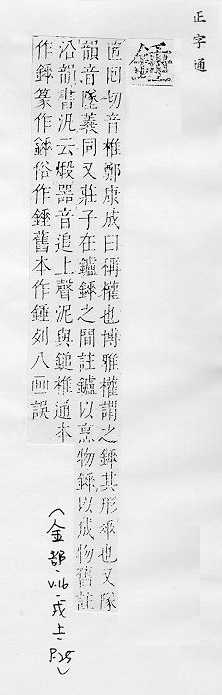 正字通
錘
直囘切音椎鄭康成曰稱權也博雅權謂之錘其形垂也又隊
韻音墜義同又莊子在鑪錘之間註鑪以烹物錘以成物舊註
沿韻書汎云煅器音追上聲泥與鎚椎通本
作錘篆作錘俗作錘舊本作錘列八画誤
(金部、V.16、戌上、P.25)